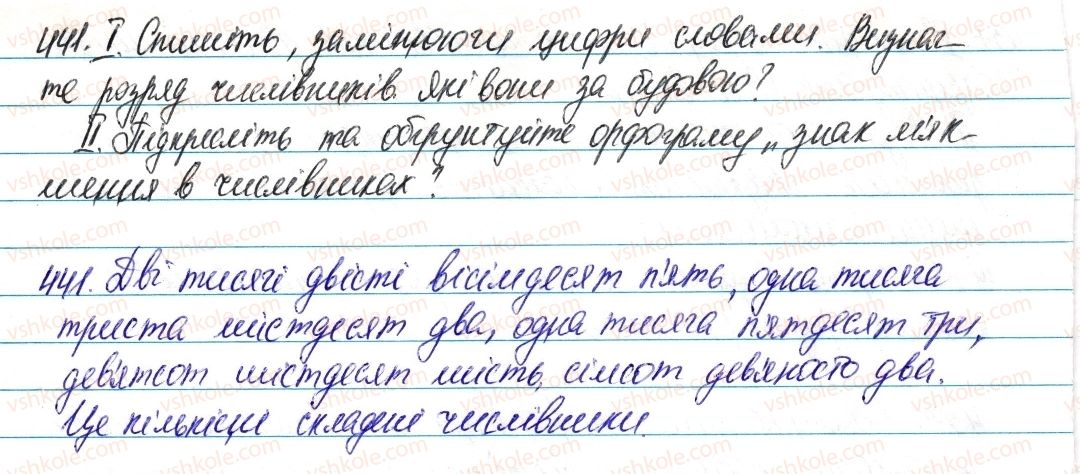 441. I. Спишіть, замінюючи цифри словами. Визнач-
те розряд числівників. Які вони за будовою?
II. Підкресліть та обґрунтуйте орфограму „знак м'як-
шення в числівниках"?
441. Дві тисячі двісті вісімдесят п'ять, одна тисяча
триста шістдесят два, одна тисяча п'ятдесят три,
дев'ятсот шістдесят шість, сімсот дев'яносто два.
Це кількісні складені числівники.